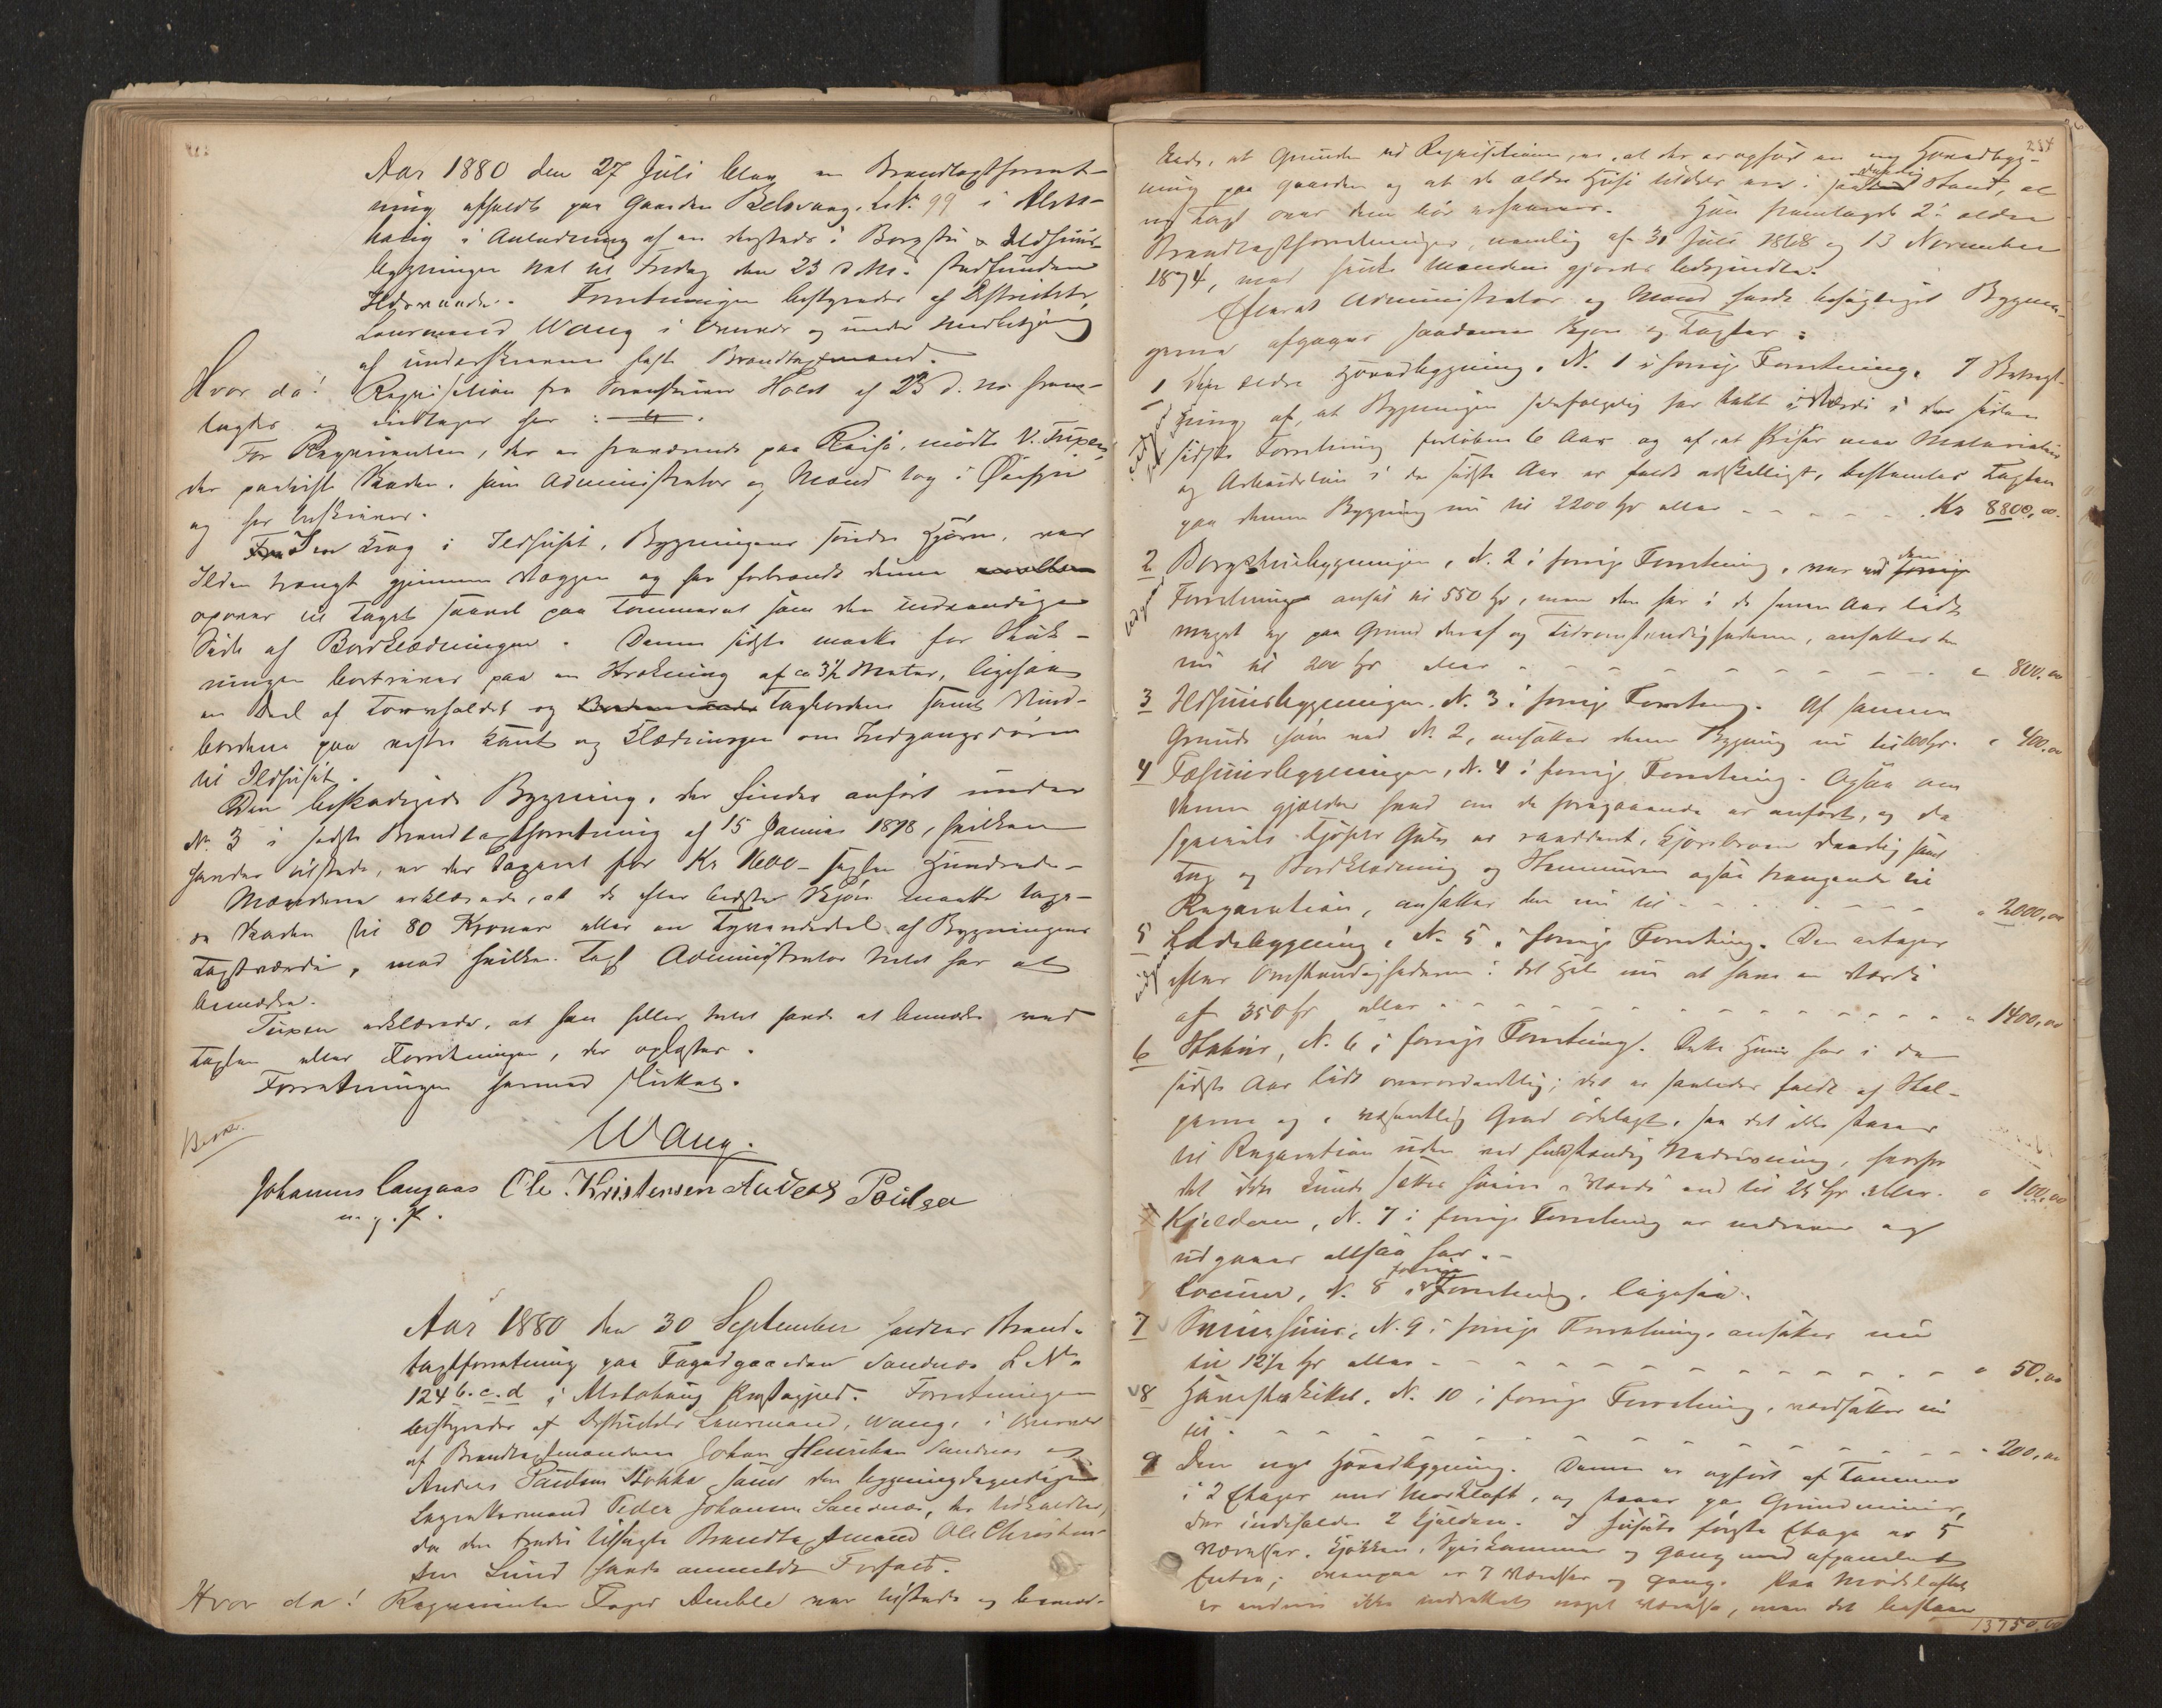 Aar 1880 den 27 Juli blev en Brandtaxtforret-
ning afholdt paa Gaarden Belsvaag, L.N. 99 i Alsta-
haug i Anledning af en derstedes i Borgstu & Ildhuus-
bygningen Nat til Fredag den 23 d. M. stedfunden
Ildsvaade. Forretningen bestyredes af Distrikts
Lensmand Wang i Overvær og under Medbetjening
af underskrevne faste Brandtaxtmænd.
Hvor da! Requisition fra Holst af 23 d. M. frem-
lagdes og indtages her:
For Requirenten, der er fraværende paa Reise, mødte V. Tuxen,
der paaviste Skaden, som Administrator og Mænd tog i Øiesyn
og her beskrives.
I en Krog i Ildhuset, Bygningens søndre Hjørne, var
Ilden trængt gjennem Væggen og har forbrændt denne
opover til Taget saavel paa Tømmeret som den indvendige
Side af Bordklædningen. Denne sidste maatte for Sluk-
ningen bortrives paa en Strækning af ca 3½ Meter, ligesaa
en Deel af Torvholdet og Tagbordene samt Vind-
bordene paa vestre Kant og Klædningen om Indgangsdøren
til Ildhuset.
Den beskadigede Bygning, der findes anført under
N. 3 i sidste Brandtaxtforretning af 15 Januar 1878, hvilken
havdes tilstede, er der taxeret for Kr 1600 - sexten Hundrede -
Mændene erklærede, at de efter bedste Skjøn maatte tage-
re Skaden til 80 Kroner eller en Tyvendedel af Bygningens
Taxtværdi, mod hvilken Taxt Administrator intet har at
bemærke.
Tuxen erklærede, at han heller intet havde at bemærke ved
Taxten eller Forretningen, der oplæstes.
Forretningen hermed sluttet.
Wang.
Johannes Langaas Ole Kristensen Anders Poulsen
m. p. P.
Aar 1880 den 30 September holdtes Brand-
taxtforretning paa Fogedgaarden Sandnes L.N.
124 b.c.d i Alstahaug Præstegjeld. Forretningen
bestyredes af Distrikts Lensmand, Wang, i Overvær
af Brandtaxtmændene Johan Henriksen Sandnes og
Anders Paulsen Stokka samt den bygningskyndige
Lagrettemand Peder Johansen Sandnes, der tilkaldtes,
da den tredie tilsagte Brandtaxtmand Ole Christen-
sen Lund havde anmeldt Forfald.
Hvor da! Requirenten Foged Auble var tilstede og bemær-
234
kede, at Grunden ved Requisitionen, er, at der er opført en ny Hovedbyg-
ning paa Gaarden og at de ældre Huse tildels ere i saa daarlig Stand, at
ny Taxt over dem bør afholdes. Han fremlagde 2 ældre
Brandtaxtforretninger, nemlig af 31 Juli 1868 og 13 November
1874, med hvilke Mændene gjordes bekjendte.
Efterat Administrator og Mænd havde besigtiget Bygnin-
gerne afgaves saadanne Skjøn og Taxter:
1 Den ældre Hovedbygning, N. 1 i forrige Forretning. I Betragt-
ning af, at Bygningen selvfølgelig har tabt i Værdi i de siden
sidste Forretning forløbne 6 Aar og af, at Priser paa Materialier
og Arbeidsløn i de sidste Aar er faldt adskilligt, bestemtes Taxten
paa denne Bygning nu til 2200 Spd eller - - - - - Kr 8800,00.
2 Borgstuebygningen, N. 2 i forrige Forretning, var ved den
Forretning ansat til 550 Spd, men den har i de senere Aar lidt
meget og paa Grund deraf og Tidsomstændighederne, ansættes den
nu til 200 Spd eller - - - - - " 800,00
3 Ildhuusbygningen, N. 3 i forrige Forretning. Af samme
Grunde som ved N. 2, ansættes denne Bygning nu til 100 Spd. " 400,00
4 Fæhuusbygningen, N. 4 i forrige Forretning. Ogsaa om
denne gjælder hvad om de foregaaende er anført, og da
specielt er raaddent, Kjørebroen daarlig samt
Tag og Bordklædning og ogsaa trængende til
Reparation, ansættes den nu til - - - - - " 2000,00
5 Ladebygning, N. 5 i forrige Forretning. Den antages
efter Omstændighederne i det Hele nu at have en Værdi
af 350 Spd eller - - - - - " 1400,00
6 Stabur, N. 6 i forrige Forretning. Dette Huus har i de
sidste Aar lidt overordentlig; det er saaledes faldt af Stol-
perne og i væsentlig Grad ødelagt, saa det ikke staaer
til Reparation uden ved fuldstændig Nedrivning, hvorfor
det ikke kunde sættes høiere i Værdi end til 25 Spd eller - " 100,00
Kjelderen, N. 7 i forrige Forretning er nedreven og
udgaaer altsaa her. -
Locum, N. 8 i forrige Forretning, ligesaa.
7 Svinehuus, N. 9 i forrige Forretning, ansættes nu
til 12½ Spd eller - - - - - " 50,00
8 N. 10 i forrige Forretning, værdsættes nu
til - - - - - " 200,00
9 Den nye Hovedbygning. Denne er opført af Tømmer
i 2 Etager med Mørkloft, og staaer paa Grundmuur,
der indeholder 2 Kjældere. I Husets første Etage er 5
Værelser, Kjøkken, Spiskammer og Gang med afpanelet
Entre; ovenpaa er 7 Værelser og Gang. Paa Mørkloftet
er endnu ikke indrettet noget Værelse, men det bestaar
13750,00